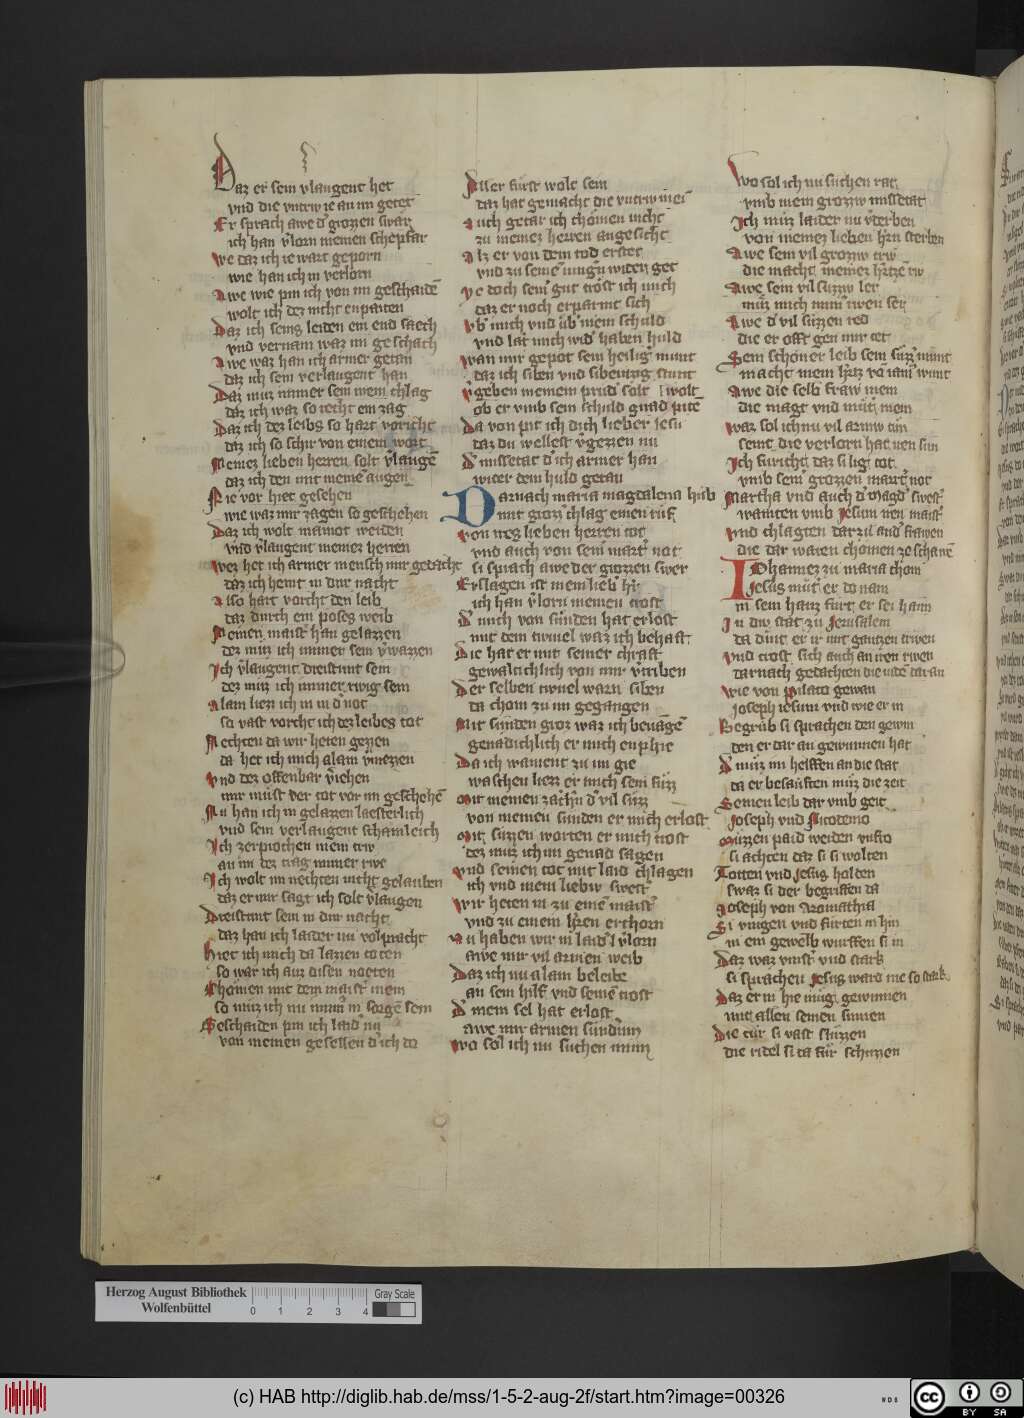 Daz er sein v̓laugent het
vnd die vntrw ie an im getet
Er sprach awe d̓ grozzen swar
ich han v̓lorn meinen schepfar
we daz ich ie wart geporn
wie han ich in verlorn
Awe wie pin ich von im geschaidē
wolt ich dez nicht enpaiten
Daz ich seins leiden ein end saech
vnd vernam waz im geschach
Awe waz han ich armer getan
daz ich sein verlaugent han
Daz muz immer sein mein chlag
daz ich waz so recht ein zag
Daz ich dez leibs so hart voricht
daz ich so schir von einem wort
Meinez lieben herren solt v̓laugē
daz ich den mit meinē augen
Nie vor hiet gesehen
wie waz mir zagen so geschehen
Daz ich wolt mainot werden
vnd v̓laugent meinez herren
Wez het ich armer mensch mir gedacht
daz ich heint in dirr nacht
Also hart vorcht den leib
daz durch ein poses weib
Meinen maist̓ han gelazzen
dez muz ich immer sein v̓wazzen
Ich v̓laugent dreistunt sein
dez muz ich immer rwig sein
Alain liez ich in in d̓ not
so vast vorcht ich dez leibez tot
Nechten da wir heten gezzen
da het ich mich alain v̓mezzen
Vnd dez offenbar v̓iehen
mir müst der tot vor im geschehē
Nu han ich in gelazzen laesterlich
vnd sein verlaugent schamleich
Ich zerprochen mein trw
an im dez trag immer rwe
Ich wolt im nechten nicht gelauben
daz er mir sagt ich solt v̓laugen
Dreistunt sein in dirr nacht
daz han ich laider nu volpracht
Hiet ich mich da lazzen toten
so war ich auz disen noeten
Chomen mit dem maist̓ mein
so muz ich nu imm̓ in sorgē sein
Gescheiden pin ich laid̓ nu
von meinen gesellen d̓ ich do
Aller fürst wolt sein
daz hat gemacht die vntrw mei
Auch getar ich chomen nicht
zu meinez herren angesicht
Alz er von dem tod erstet
vnd zu seinē iung̓n witer get
Ye doch sein gut tröst ich mich
daz er noch erparmt sich
Vb̓ mich vnd üb̓ mein schuld
vnd lat mich wid̓ haben huld
Wan mir gepot sein heilig munt
daz ich siben vnd sibentzig stunt
V̓geben meinem prud̓ solt
ob er vmb sein schuld gnad pitē wolt
Da von pit ich dich lieber iesu
daz du wellest v̓gezzen nu
D̓ missetat d̓ ich armer han
witer dem huld getan
Darnach maria magdalena hub
mit grozz̓ chlag einen rüf
Von irez lieben herren tot
vnd auch von sein̓ mart̓ not
si sprach awe der grozzen swer
Erslagen ist mein lieb̓ h̓r
ich han v̓lorn meinen trost
D̓ mich von sünden hat erlost
mit dem tiuuel waz ich behaft
Die hat er mit seiner chraft
gewaltichlich von mir v̓triben
Der selben tiuuel warn siben
da chom zu im gegangen
Mit sünden groz waz ich bevāgē
genadichlich er mich enphie
Da ich wainent zu im gie
waschen liezz er mich sein füzz
Mit meinen zaeh̓n d̓ vil süzz
von meinen sünden er mich erlost
Mit süzzen worten er mich trost
dez muz ich im genad sagen
Vnd seinen tot mit laid chlagen
ich vnd mein liebiv swest̓
Wir heten in zu einē maist̓
vnd zu einem h̓ren erchorn
Nu haben wir in laid̓ v̓lorn
awe mir vil armen weib
Daz ich nu alain beleibe
an sein hilf vnd seinē trost
D̓ mein sel hat erlost
awe mir armen sünd̓inn
Wo sol ich nu suchen minn
Wo sol ich nu suchen rat
vmb mein grozziv missetat
Ich müz laider nu v̓derben
von meinez lieben h̓rn sterben
Awe sein vil grozziv trw
die macht meinez h̓tzē rw
Awe sein vil süzziv ler
müz mich imm̓ rwen ser
Awe d̓ vil süzzen red
die er offt gen mir tet
Sein schoner leib sein süzz̓ munt
macht mein h̓tz vō iam̓ wunt
Awe die selb fraw mein
die magt vnd müt̓ mein
Waz sol ich nu vil armiv tün
seint die verlorn hat iren sun
Ich füricht daz si lig tot
vmb sein̓ grozzen mart̓ not
Martha vnd auch d̓ magd̓ swest̓
wainten vmb Jesum iren maist̓
Vnd chlagten dar zü and̓ frawen
die dar waren chomen ze schawē
Johannez zu maria chom
Jesus müt̓ er do nam
in sein hauz fürt er sei haim
In diw stat zu Jerusalem
da dint er ir mit gantzen triwen
Vnd trost sich auch an iren riwen
darnach gedachten die iudē daran
Wie von pilato gewan
Joseph iesum vnd wie er in
Begrub si sprachen den gewin
den er dar an gewinnen hat
D̓ müz im helffen an die stat
da er besäuften müz die zeit
Seinen leib dar vmb geit
Joseph vnd Nicodemo
Müzzen paid werden vnfro
si achten daz si si wolten
Totten vnd Jesus holden
swaz si der begriffen da
Joseph von Aromathia
Si viengen vnd fürten in hin
in ein gewelb wurffen si in
Daz waz vinst̓ vnd stark
si sprachen Jesus ward nie so stark
Daz er in hie müg gewinnen
mit allen seinen sinnen
Die tür si vast sluzzen
die ridel si da für schuzzen
Herzog August Bibliothek
Wolfenbüttel
0 1 2 3 4
Gray Scale
(c) HAB http://diglib.hab.de/mss/1-5-2-aug-2f/start.htm?image=00326
WDB
cc BY SA